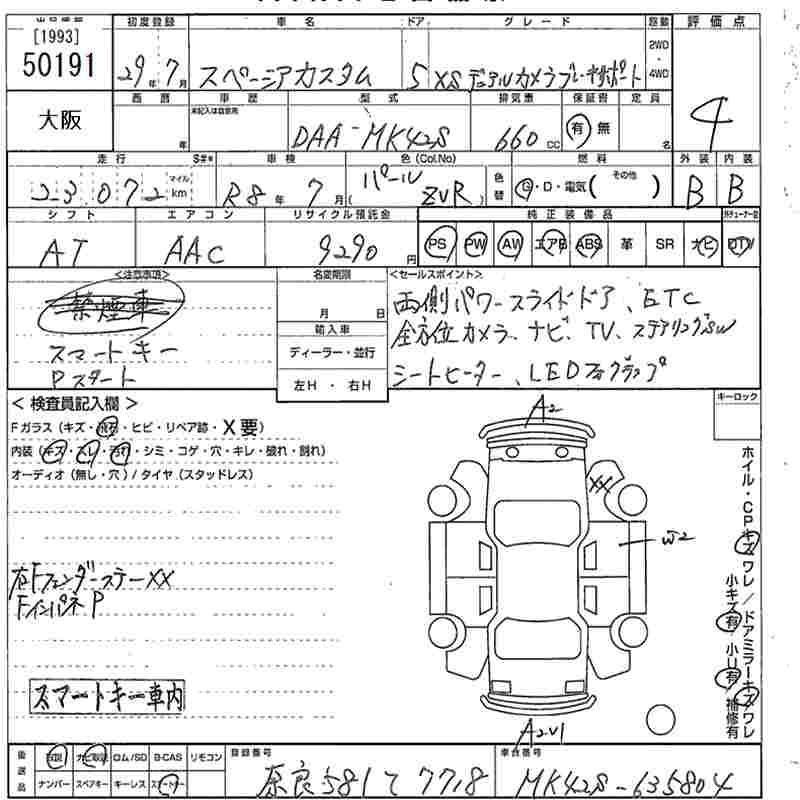 [1993]
50191
大阪
初度登録 車名 ドア グレード 駆動 評価点
29年7月 スペーシアカスタム 5 XSデュアルカメラブレーキサポート 2WD・4WD 4
西暦 車歴 型式 排気量 保証書 定員
年 未記入は自家用 DAA-MK42S 660cc 有 無 名
走行 S#* 車検 色(Col.No) 燃料 外装 内装
23.072 マイル km R8年7月 (パール ZVR) 色替 G・D・電気( その他 ) B B
シフト エアコン リサイクル預託金 純正装備品
AT AAC 9290円 PS PW AW エアB ABS 革 SR ナビ TV
<注意事項> 名変期限 <セールスポイント>
禁煙車 月 日
スマートキー 輸入車
Pスタート ディーラー・並行
左H・右H
両側パワースライドドア、ETC
全方位カメラ、ナビ、TV、ステアリングSW
シートヒーター、LEDフォグランプ
<検査員記入欄>
Fガラス(キズ・飛石・ヒビ・リペア跡・X要)
内装(キズ・スレ・汚れ・シミ・コゲ・穴・キレ・破れ・割れ)
オーディオ(無し・穴)/タイヤ(スタッドレス)
右Fフェンダーステー XX
FインパネP
スマートキー車内
キーロック
A2
XX
W2
A2U1
ホイル・CPキズワレ/ドアミラーキズワレ
小キズ有 小U有 補修有
後選品 取説 ナビ取説 ロム/SD B-CAS リモコン
ナンバー スペアキー キーレス スマートキー
登録番号 奈良581て7718
車台番号 MK42S-635804